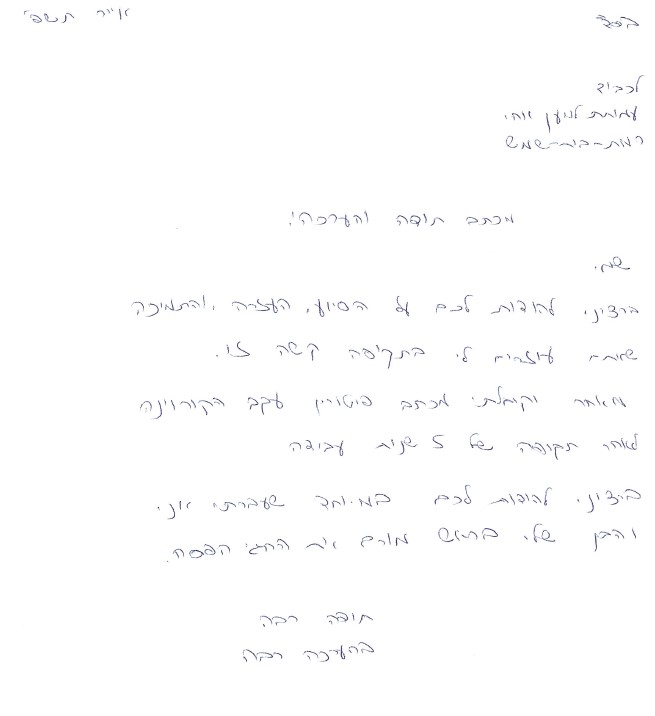 בס"ד
אייר תשפ"
לכבוד
עמותת למען אחי
רמת-בית-שמש
מכתב תודה והערכה!
שמי
ברציני להודות לכם על הסיוע, העזרה, והתמיכה
שאתם עוזרים לי בתקופה קשה זו.
מאחר וקיבלתי מכתב פיטורין עקב הקורונה
לאחר תקופה של 5 שנות עבודה
ברציני להודות לכם במיוחד שעברתי אני
והבן שלי בראש מורם את החג הפסח.
תודה רבה
בהערכה רבה